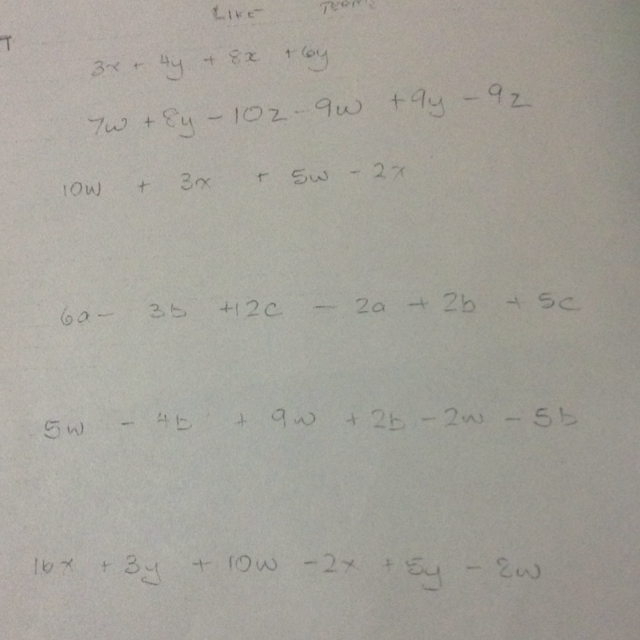 Like Terms
3x + 4y + 8x + 6y
7w + 8y - 10z - 9w + 9y - 9z
10w + 3x + 5w - 2x
6a - 3b + 12c - 2a + 2b + 5c
5w - 4b + 9w + 2b - 2w - 5b
16x + 3y + 10w - 2x + 5y - 8w